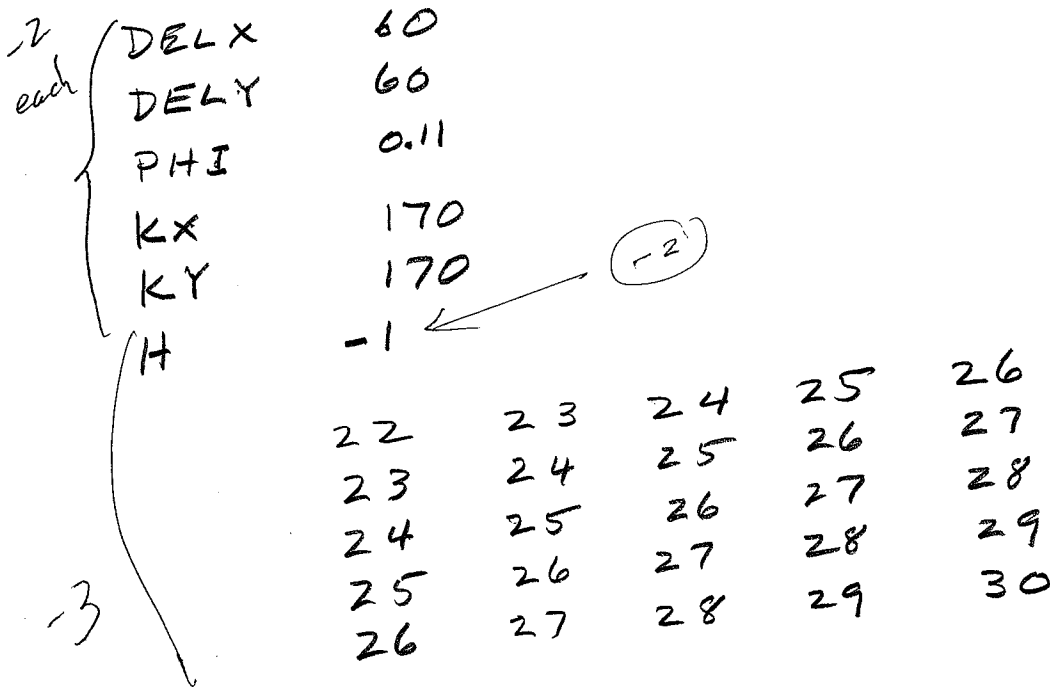 -2 each
DELX 60
DELY 60
PHI 0.11
KX 170
KY 170
-2
H -1
22 23 24 25 26
23 24 25 26 27
24 25 26 27 28
25 26 27 28 29
26 27 28 29 30
-3